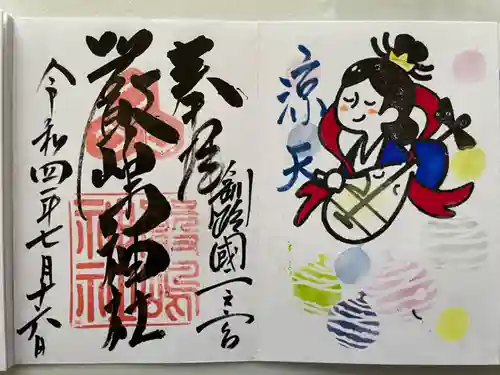 涼天
奉拝
釧路國一之宮
厳嶋神社
令和四年七月十六日